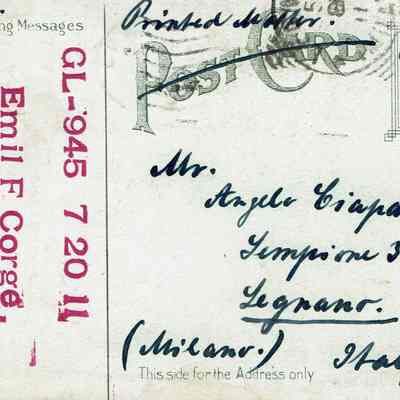 ng Messages
GL-945 7 20 11
Emil F Corgé,
Printed Matter.
POST CARD
Mr.
Angelo Ciapa
Sempione 3
Legnano.
(Milano.) Ital
This side for the Address only